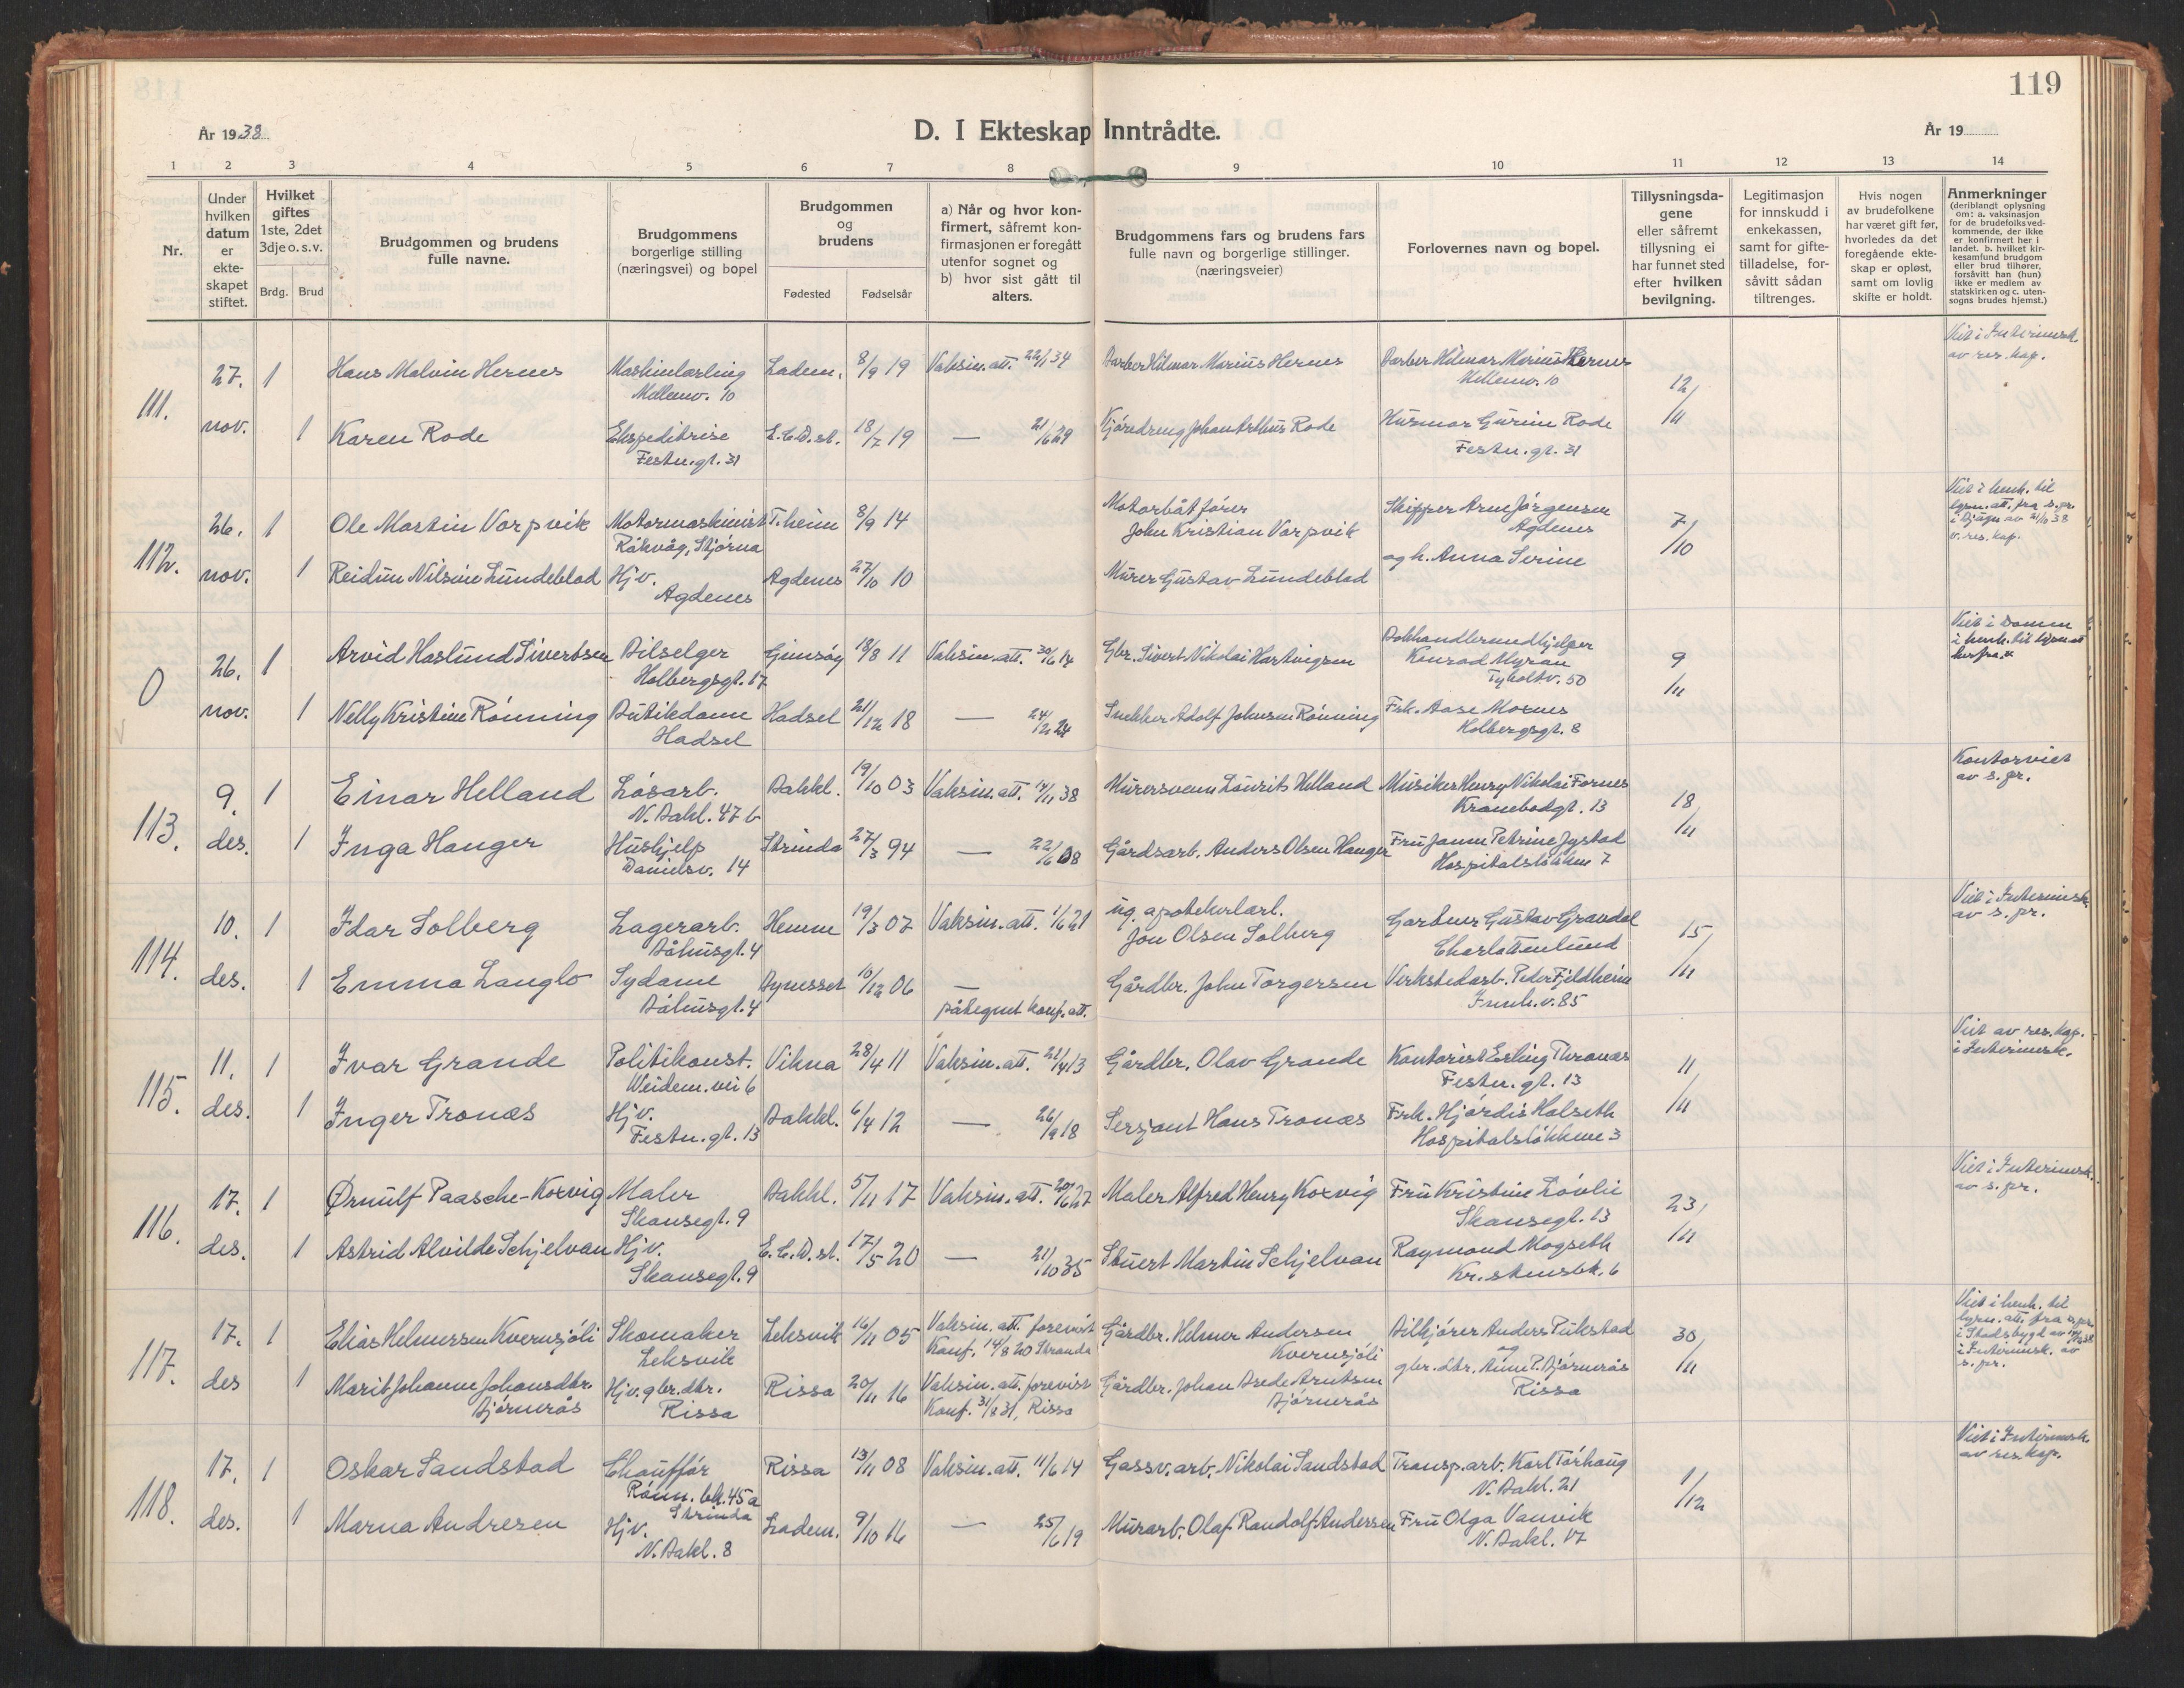 119
År 1938
D. I Ekteskap Inntrådte.
År 19
1 2 3 4 5 6 7 8 9 10 11 12 13 14
Nr.
Under hvilken datum er ekte-skapet stiftet.
Hvilket giftes 1ste, 2det 3dje o. s. v.
Brdg. Brud
Brudgommen og brudens fulle navne.
Brudgommens borgerlige stilling (næringsvei) og bopel
Brudgommen og brudens
Fødested Fødselsår
a) Når og hvor kon-firmert, såfremt kon-firmasjonen er foregått utenfor sognet og b) hvor sist gått til alters.
Brudgommens fars og brudens fars fulle navn og borgerlige stillinger. (næringsveier)
Forlovernes navn og bopel.
Tillysningsda-gene eller såfremt tillysning ei har funnet sted efter hvilken bevilgning.
Legitimasjon for innskudd i enkekassen, samt for gifte-tilladelse, for-såvitt sådan tiltrenges.
Hvis nogen av brudefolkene har været gift før, hvorledes da det foregående ekte-skap er opløst, samt om lovlig skifte er holdt.
Anmerkninger (deriblandt oplysning om: a. vaksinasjon for de brudefolks ved-kommende, der ikke er konfirmert her i landet. b. hvilket kir-kesamfund brudgom eller brud tilhører, forsåvitt han (hun) ikke er medlem av statskirken og c. uten-sogns brudes hjemst.)
111. 27. nov. 1 Hans Malvin Hernes Maskinlærling Mellemv. 10 Ladem. 8/9 19 Vaksin. att. 22/1 34 Barber Hilmar Marius Hernes Barber Hilmar Marius Hernes Mellemv. 10 12/11 Viet i Interimsk. av res. kap.
1 Karen Rode Ekspeditrise Festn. gt. 31 E.C.D. st. 18/7 19 — 21/6 29 Kjøredreng Johan Arthur Rode Husmor Gurine Rode Festn. gt. 31
112. 26. nov. 1 Ole Martin Vorpvik Motormaskinist Råkvåg, Stjørna T.heim 8/9 14 Motorbåtfører John Kristian Vorpvik Skipper Arne Jørgensen Agdenes 7/10 Viet i henh. til lysn. att. fra s. pr. i av 21/10 38 v. res. kap.
1 Reidun Nilsine Lundeblad Hjv. Agdenes Agdenes 27/10 10 Murer Gustav Lundeblad og h. Anna Serine
0 26. nov. 1 Arvid Haslund Sivertsen Bilselger Holbergsgt. 17 Gimsøy 18/8 11 Vaksin. att. 30/6 14 Gbr. Sivert Nikolai Hartvigsen Bokhandlermedhjelper Konrad Myran Tyholtv. 50 9/11 Viet i Domen i henh. til lysn. att herfra.
1 Nelly Kristine Rønning Butikdame Hadsel Hadsel 21/12 18 — 24/12 24 Snekker Adolf Johnsen Rønning Frk. Aase Moxnes Holbergsgt. 8
113. 9. des. 1 Einar Helland Løsarb. N. Bakl. 47 b Bakkl. 19/10 03 Vaksin. att. 14/11 38 Murersvenn Laurits Helland Musiker Henry Nikolai Fornes Kranebodgt. 13 18/11 Kontorviet av s. pr.
1 Inga Hanger Hushjelp Danielsv. 14 Strinda 27/3 94 — 22/6 08 Gårdsarb. Anders Olsen Hanger Fru Janne Petrine Jystad Hospitalsløkken 7
114. 10. des. 1 Idar Solberg Lagerarb. Båhusgt. 4 Hemne 19/3 07 Vaksin. att. 1/6 21 ug. apotekerlærl. Jon Olsen Solberg Gartner Gustav Gravdal Charlottenlund 15/11 Viet i Interimsk. av s. pr.
1 Emma Langlo Sydame Båhusgt. 4 Bynesset 10/12 06 — påtegnet konf. att. Gårdbr. John Torgersen Verkstedarb. Peder Fjeldheim Innh. v. 85
115. 11. des. 1 Ivar Grande Politikonst. Weidem. vei 6 Vikna 28/4 11 Vaksin. att. 21/4 13 Gårdbr. Olav Grande Kontorist Erling Thronæs Festn. gt. 13 11/11 Viet av res. kap. i Interimsk.
1 Inger Tronæs Hjv. Festn. gt. 13 Bakkl. 6/4 12 — 26/9 18 Sersjant Hans Tronæs Frk. Hjørdis Holseth Hospitalsløkken 3
116. 17. des. 1 Ørnulf Paasche-Koxvig Maler Skansegt. 9 Bakkl. 5/11 17 Vaksin. att. 20/6 27 Maler Alfred Henry Koxvig Fru Kristine Løvli Skansegt. 13 23/11 Viet i Interimsk. av s. pr.
1 Astrid Alvilde Schjelvan Hjv. Skansegt. 9 E.C.D. st. 17/5 20 — 21/10 35 Stuert Martin Schjelvan Raymond Mogseth Kr.stensbk. 6
117. 17. des 1 Elias Helmersen Kvernsjøli Skomaker Leksvik Leksvik 16/11 05 Vaksin. att. forevist Konf. 14/8 20 Stranda Gårdbr. Helmer Andersen Kvernsjøli Bilkjører Anders Pukstad og 30/11 Viet i henh. til lysn. att. fra s. pr. i Stadsbygd av i Interimsk. av s. pr.
1 Marit Johanne Johansdtr. Bjørnerås Hjv. gbr. dtr. Rissa Rissa 20/11 16 Vaksin. att. forevist Konf. 31/8 31, Rissa Gårdbr. Johan Brede Arntsen Bjørnerås gbr. dtr. Anne P. Bjørnerås Rissa
118. 17. des. 1 Oskar Sandstad Chauffør Rønn. bk. 45a Strinda Rissa 13/11 08 Vaksin. att. 11/6 14 Gassv. arb. Nikolai Sandstad Transp. arb. Karl Tørhaug N. Bakl. 21 1/12 Viet i Interimsk. av res. kap.
1 Marna Andresen Hjv. N. Bakl. 8 Ladem. 9/10 16 — 25/6 19 Murarb. Olaf Randolf Andersen Fru Olga Vanvik N. Bakl. 17